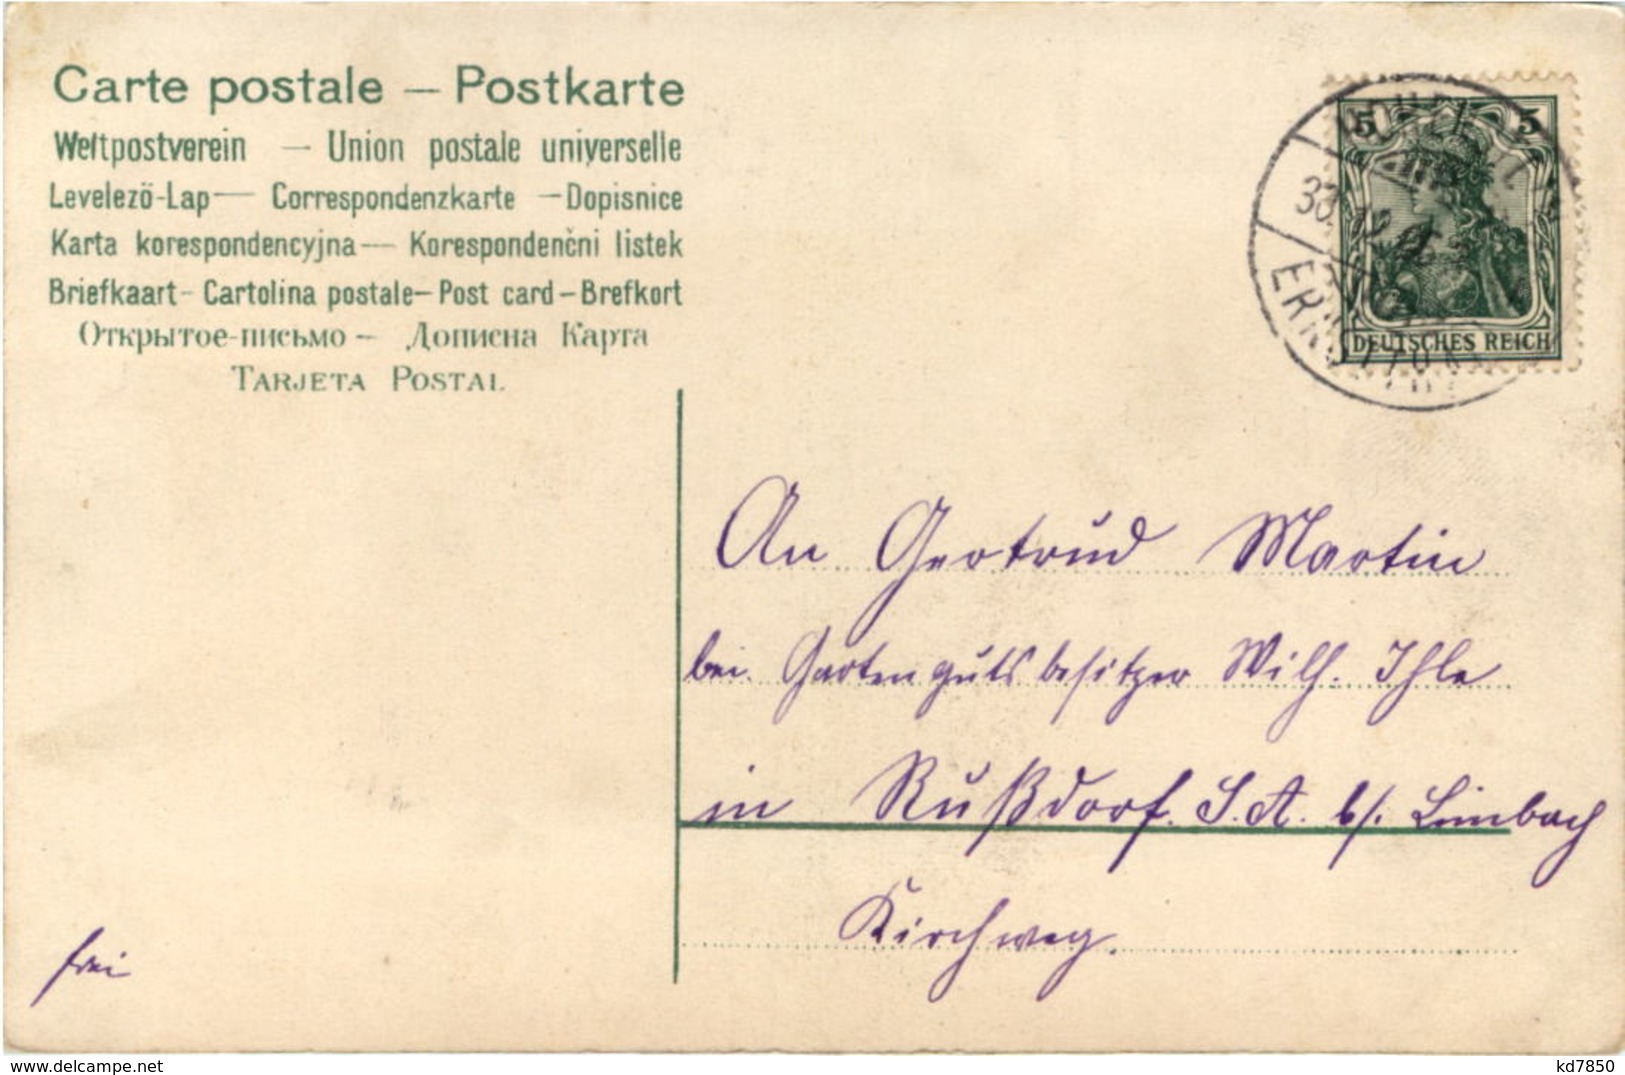 Carte postale — Postkarte
Weltpostverein — Union postale universelle
Levelezö-Lap — Correspondenzkarte — Dopisnice
Karta korespondencyjna — Korespondenčni listek
Briefkaart - Cartolina postale - Post card - Brefkort
Открытое-письмо — Дописна Карта
TARJETA POSTAL
5 5
DEUTSCHES REICH
An Gertrud Martin
bei Gartengutsbesitzer Wilh. Ihle
in Rußdorf. S. A. b/. Limbach
Kirchweg.
frei
www.delcampe.net
kd7850